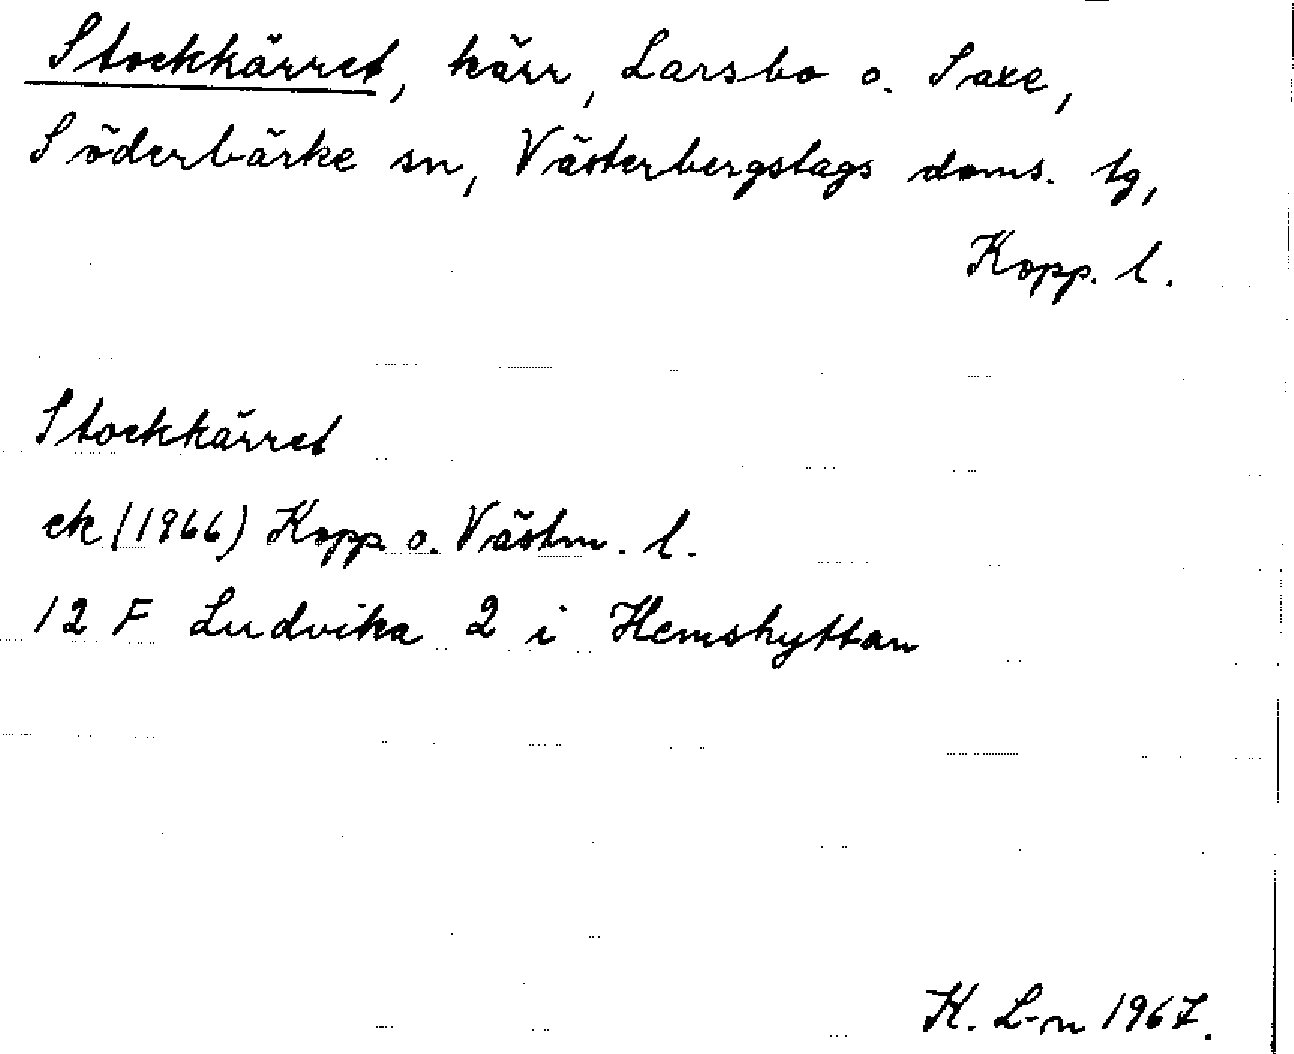 Stockkärret, kärr, Larsbo o. Saxe,
Söderbärke sn, Västerbergslags doms. tg,
Kopp. l.
Stockkärret
ek (1966) Kopp. o. Västm. l.
12 F Ludvika 2 i Hemshyttan
K. L-n 1967.